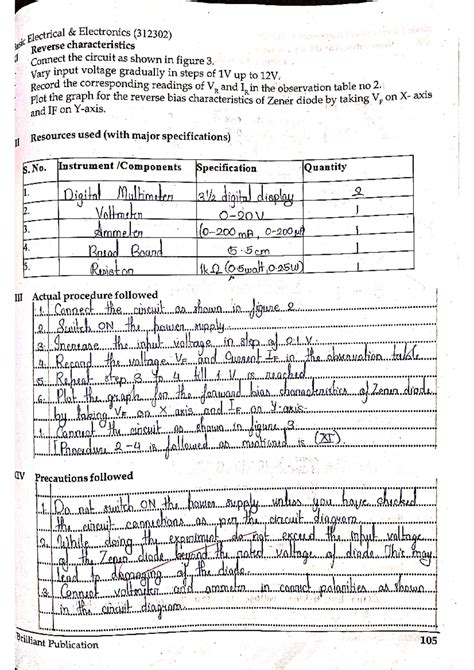 Basic Electrical & Electronics (312302)
Reverse characteristics
Connect the circuit as shown in figure 3.
Vary input voltage gradually in steps of 1V up to 12V.
Record the corresponding readings of VR and IR in the observation table no 2.
Plot the graph for the reverse bias characteristics of Zener diode by taking VF on X- axis
and IF on Y-axis.
II Resources used (with major specifications)
S. No. Instrument /Components Specification Quantity
1. Digital Multimeter 3½ digital display 2
2. Voltmeter 0-20V 1
3. Ammeter (0-200 mA, 0-200 µA) 1
4. Bread Board 5.5cm 1
5. Resistor 1kΩ (0.5watt, 0.25W) 1
III Actual procedure followed
1. Connect the circuit as shown in figure 2.
2. Switch ON the power supply.
3. Increase the input voltage in step of 0.1 V.
4. Record the voltage VF and current IF in the observation table
5. Repeat step 3 to 4 till 1 V is reached
6. Plot the graph for the forward bias characteristics of Zener diode
by taking VF on X axis and IF on Y-axis.
1. Connect the circuit as shown in figure 3.
Procedure 2-4 is followed as mentioned is (XI)
XIV Precautions followed
1. Do not switch ON the power supply unless you have checked
the circuit connections as per the circuit diagram.
2. While doing the experiment do not exceed the input voltage
of the Zener diode beyond the rated voltage of diode. This may
lead to damaging of the diode.
3. Connect voltmeter and ammeter in correct polarities as shown
in the circuit diagram.
Brilliant Publication 105